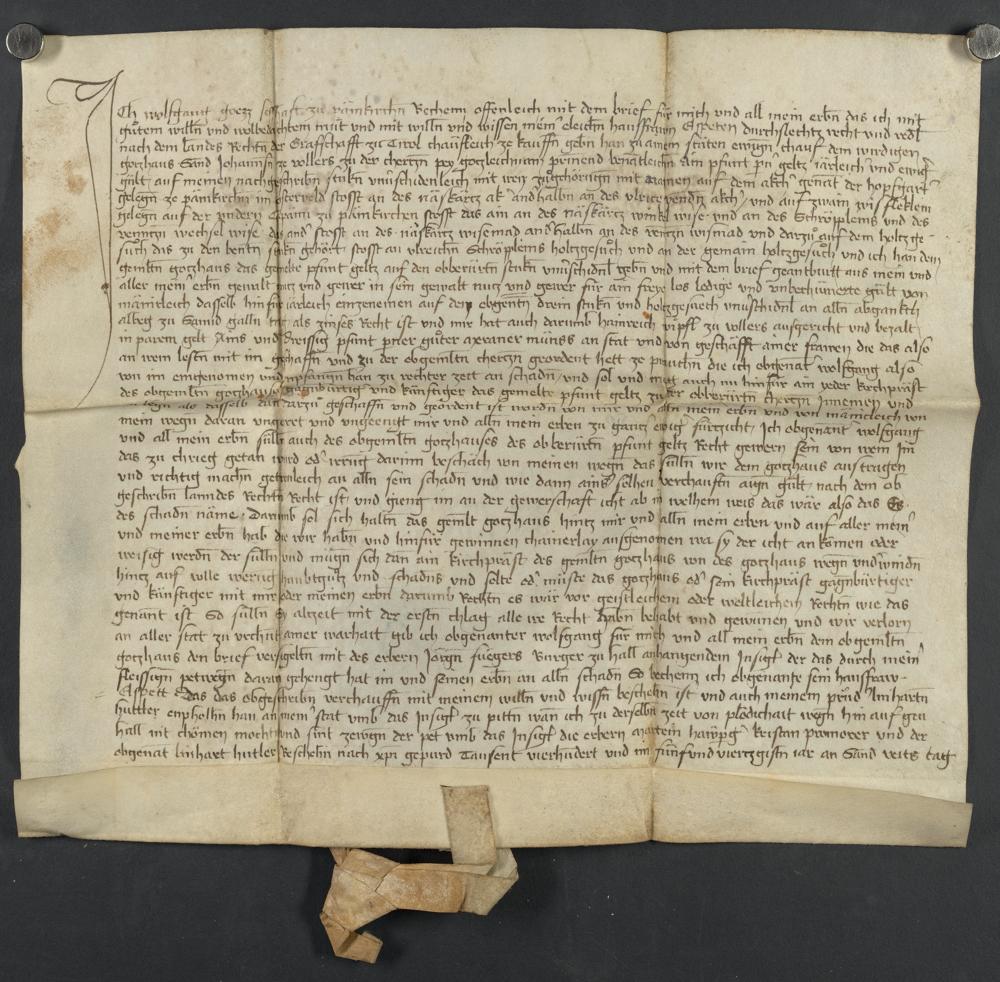 Ich wolfgang goezz seshaft zu pämkirchn Bechenn offenleich mit dem brief für mich und all mein erbn das ich mit
gůtem willn und wolbedachtem můt und mit willn und wissen meiner eleichn hausfrawn Espeten durschlechtz recht und redl
nach dem Landes Rechtn der Graffschafft zu Tirol chäufleich ze kauffn gebn han zu ainem stäten ewign chauf dem wirdigen
gotzhaus Sand Johannsn ze vollers zu der chertzn pey gotzleichnam prinend benätleichn Ain pfunt pn geltz iärleich und ewig
gült auf meinen nachgeschribn stukn unuschidenleich mit irer zůgehörungn mit namen auf dem akch genāt der hopfgart
gelegn ze pämkirchn im osterveld stosst an des näskärtz ak andhalbn an des ulrice akch und auf zwain wisflekleen
gelegn auf der undern Rawnn zu pämkirchen stosst das ain an des näskärtz winkl wise und an des Schröpleins und des
wechsel wise das and stosst an des näskärtz wisemad and halbn an des wismad und darzů auf dem holtzge
sůch das zu den bentn stukn gehört stosst an ulreichn Schröpleins holtzgesůch und an der gemain holtzgesůch und ich han dem
gemeltn gotzhaus das gemelte pfunt geltz auf den obberürtn stukn unuschidnl gebn und mit dem brief geantburtt aus mein und
aller meiner erbn gewalt nutz und gewer in sein gewalt nutz und gewer für ain freye los ledige und unbechümerte gült von
mänikleich dasselb hinfür iärleich einzenemen auf den obgentn drein stukn und holtzgesuech unuschidnl an alln abgankch
albeg zu Sannd galln tag als zinses Recht ist und mir hat auch darumb hainreich zu vollers ausgericht und bezalt
in parem gelt Ains und dreissig pfunt perner gůter meraner münss an stat und von geschäfft ainer frawen die das also
an irem lestn mit im geschaffn und zu der obgemeltn chertzn geordent hett ze prauchn die ich obgenāt wolfgang also
von im eingenomen und enpfangn han zu rechter zeit an schadn und sol und mag auch nu hinfür ain yeder kirchpräst
des obgemeltn gotzhaus gagnbürtig und künftiger das gemelte pfunt geltz zu der obberürtn chertzn Innemen und
als dasselb dan darzu geschaffn und geordent ist wordn von mir und alln mein erbn und von mänikleich von
mein wegn daran ungeirrt und ungeengt mir und alln mein erben zu gantz ewig fürzicht Ich obgenant wolfgang
und all mein erbn sülln auch des obgemeltn gotzhauses des obberürtn pfunt geltz Recht gewern sein von wem Im
das zu chrieg getan wird od irrūg darinn beschäch von meinen wegn das sülln wir dem gotzhaus austragen
und richtig machn gentzleich an alln sein schadn und wie dann ains solhen verchauftn aign gült nach dem ob
geschribn lanndes Rechtn Recht ist und gieng im an der gewerschaft icht ab in welhem weis das wär also das Es
des schadn näme Darumb sol sich haltn das gemelt gotzhaus hintz mir und alln mein erben und auf aller mein
und meiner erbn hab die wir habn und hinfür gewinnen chainerlay ausgenomen wa sy der icht ankömen oder
weisig werdn der sülln und mügn sich dan ain kirchpräst des gemeltn gotzhaus von des gotzhaus wegn
hintz auf volle werūg haubtgůtz und schadns und solte od müste das gotzhaus od sein kirchpräst gagnbürtiger
und künftiger mit mir oder meinen erbn darumb Rechtn es wär vor geistleichem oder weltleichem Rechtn wie das
genant ist So sülln Sy altzeit mit der erstn chlag alle ire Recht habn behabt und gewunen und wir verlorn
an aller stat zu urchūt ainer warhait gib ich obgenanter wolfgang für mich und all mein erbn dem obgemeltn
gotzhaus den brief versigeltn mit des erbern Jörgn füegers Burger zu hall anhangendem Insigl der das durch mein
fleissign petwegn daran gehengt hat im und seinen erbn an alln schadn So bechenn ich obgenante sein hausfraw
Espett das das obgeschribn verchauffn mit meinem willn und wissn beschehn ist und auch meinem frūd linhartn
huttler enpholhn han an mein stat umb das Insigl zu pittn wan ich zu derselbn zeit von plödichait wegn hin auf gen
hall nit chömen mocht und sint zewgn der pet umb das Insigl die erbern martein kristan prannover und der
obgenāt linhart hutler Beschehn nach xpi gepurd Tausent vierhundert und im fümfundviertzgistn iar an Sand veits tag